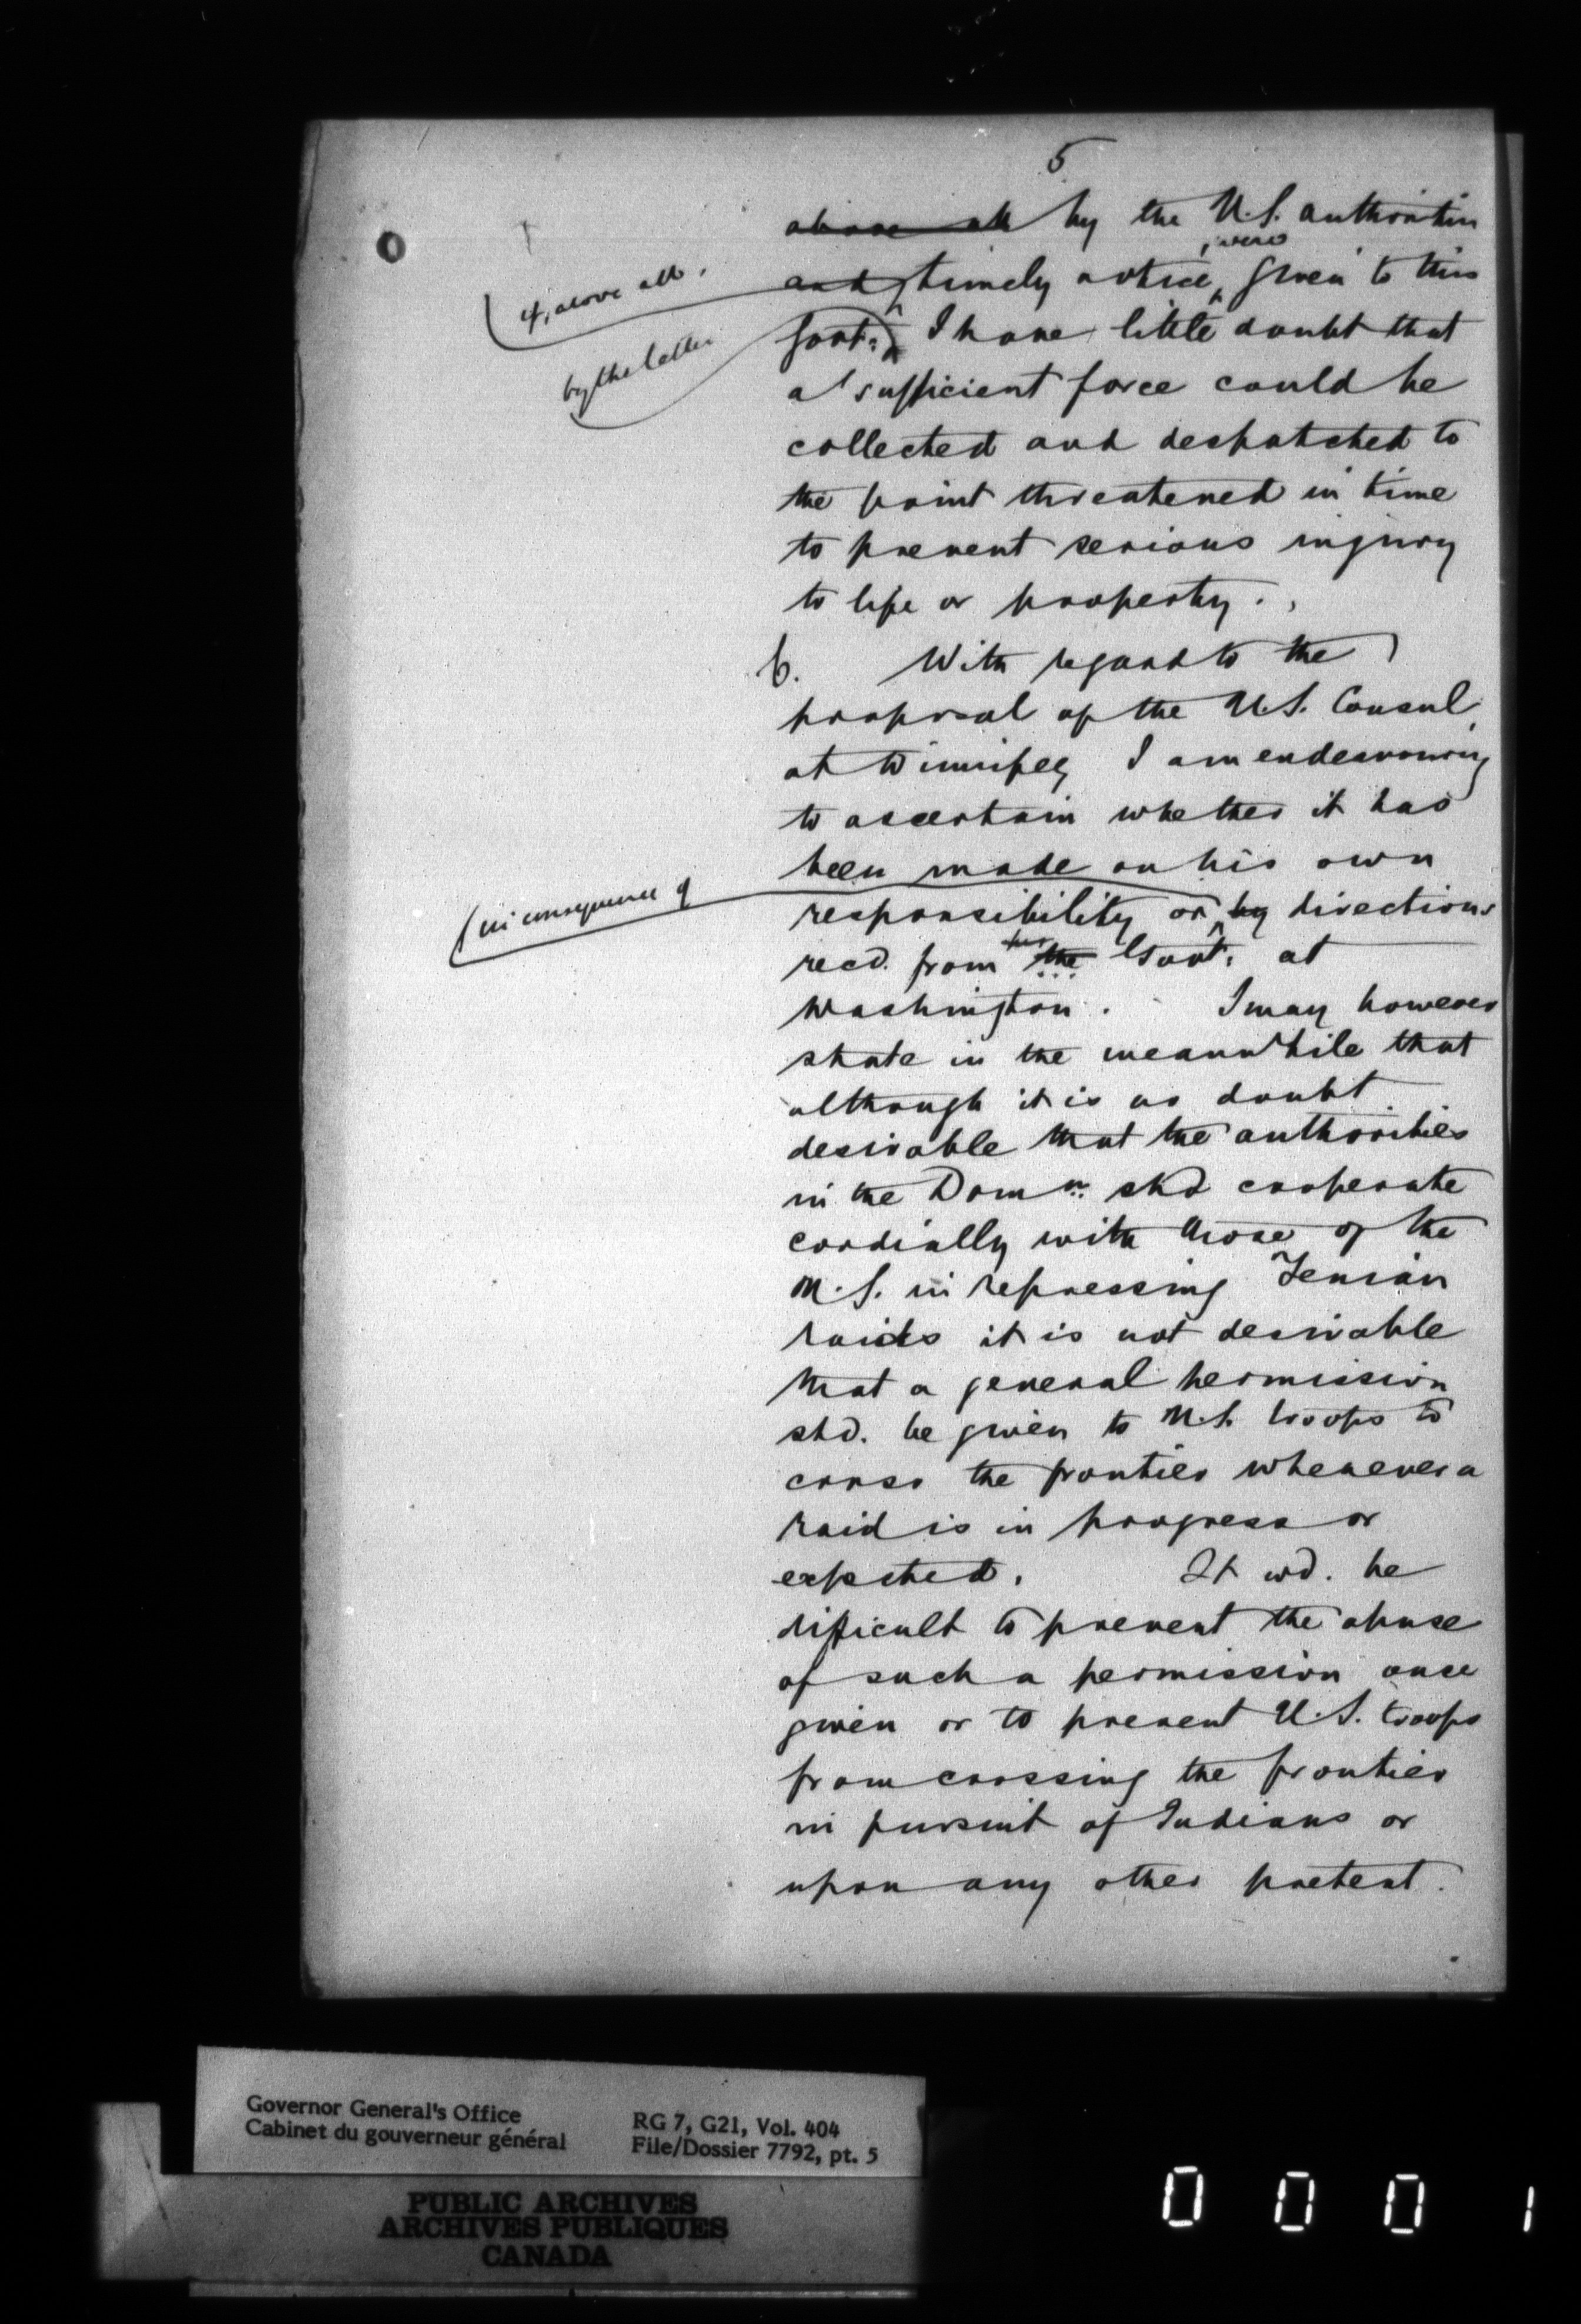 5
above all by the U.S. authorities
if, above all,
and timely notice, were given to this
by the latter
Govt: I have little doubt that
a sufficient force could be
collected and despatched to
the point threatened in time
to prevent serious injury
to life or property.
6. With regard to the
proposal of the U.S. Consul
at Winnipeg I am endeavouring
to ascertain whether it has
been made on his own
in consequence of
responsibility or by directions
recd. from his the Govt: at
Washington. I may however
state in the meanwhile that
although it is no doubt
desirable that the authorities
in the Domn: shd cooperate
cordially with those of the
U.S. in repressing Fenian
raids it is not desirable
that a general permission
shd. be given to U.S. troops to
cross the frontier whenever a
raid is in progress or
expected. It wd. be
difficult to prevent the abuse
of such a permission once
given or to prevent U.S. troops
from crossing the frontier
in pursuit of Indians or
upon any other pretext.
Governor General's Office
Cabinet du gouverneur général
RG 7, G21, Vol. 404
File/Dossier 7792, pt. 5
PUBLIC ARCHIVES
ARCHIVES PUBLIQUES
CANADA
0 0 0 1